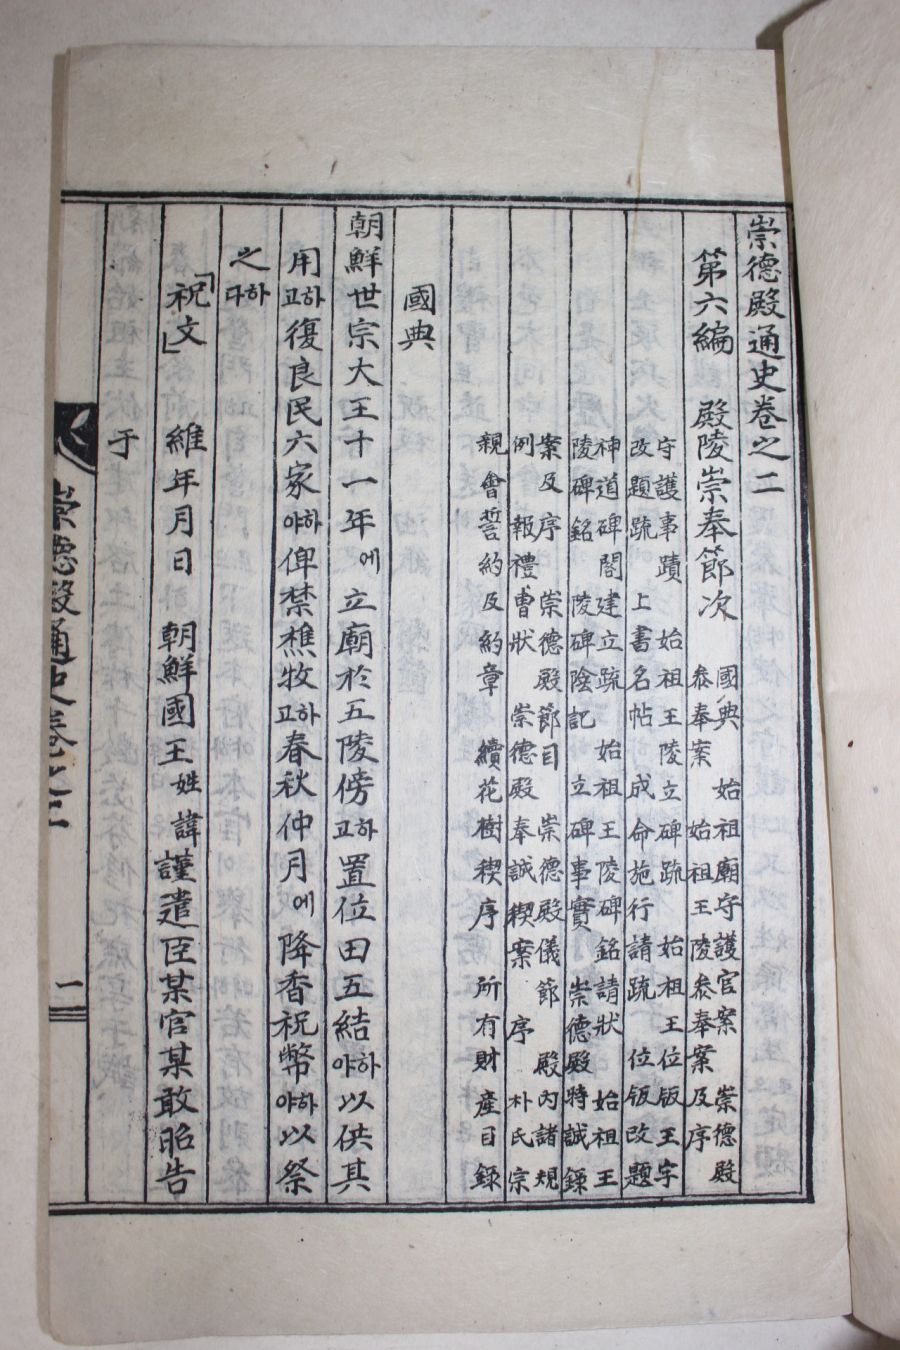 崇德殿通史卷之二
第六編 殿陵崇奉節次 國典 始祖廟守護官案 崇德殿
參奉案 始祖王陵參奉案及序
守護事蹟 始祖王陵立碑疏 始祖王位版王字
改題疏 上書名帖 成命施行請疏 位版改題
神道碑閣建立疏 始祖王陵碑銘請狀 始祖王
陵碑銘 陵碑陰記 立碑事實 崇德殿時誠錄
案及序 崇德殿節目 崇德殿儀節 殿內諸規
例 報禮曹狀 崇德殿奉誠稧案 序 朴氏宗
親會誓約及約章 續花樹稧序 所有財產目錄
國典
朝鮮世宗大王十一年에立廟於五陵傍하고置位田五結하야以供其
用하고復良民六家하야俾禁樵牧하고春秋仲月에降香祝幣하야以祭
之하다
「祝文」 維年月日 朝鮮國王姓諱謹遣臣某官某敢昭告
于
崇德殿通史卷之二
一